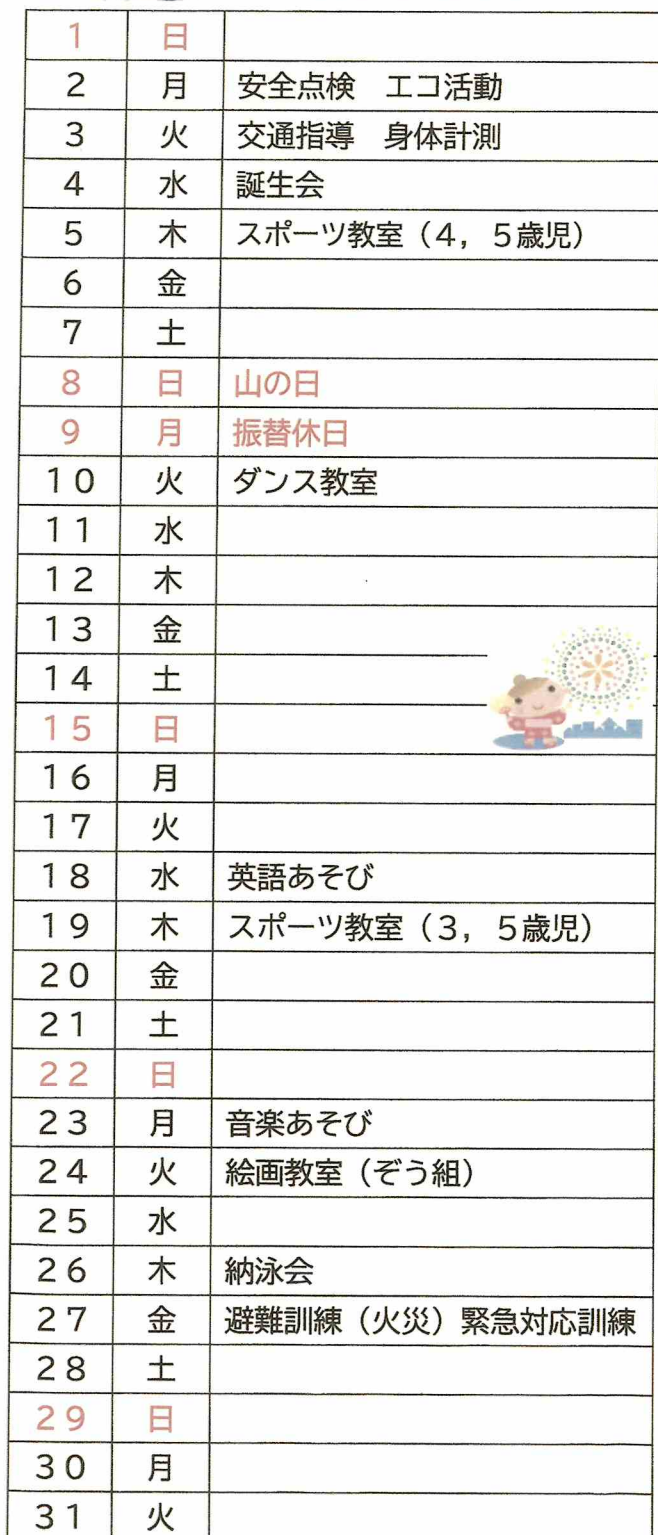 1 日
2 月 安全点検　エコ活動
3 火 交通指導　身体計測
4 水 誕生会
5 木 スポーツ教室（4，5歳児）
6 金
7 土
8 日 山の日
9 月 振替休日
10 火 ダンス教室
11 水
12 木
13 金
14 土
15 日
16 月
17 火
18 水 英語あそび
19 木 スポーツ教室（3，5歳児）
20 金
21 土
22 日
23 月 音楽あそび
24 火 絵画教室（ぞう組）
25 水
26 木 納泳会
27 金 避難訓練（火災）緊急対応訓練
28 土
29 日
30 月
31 火